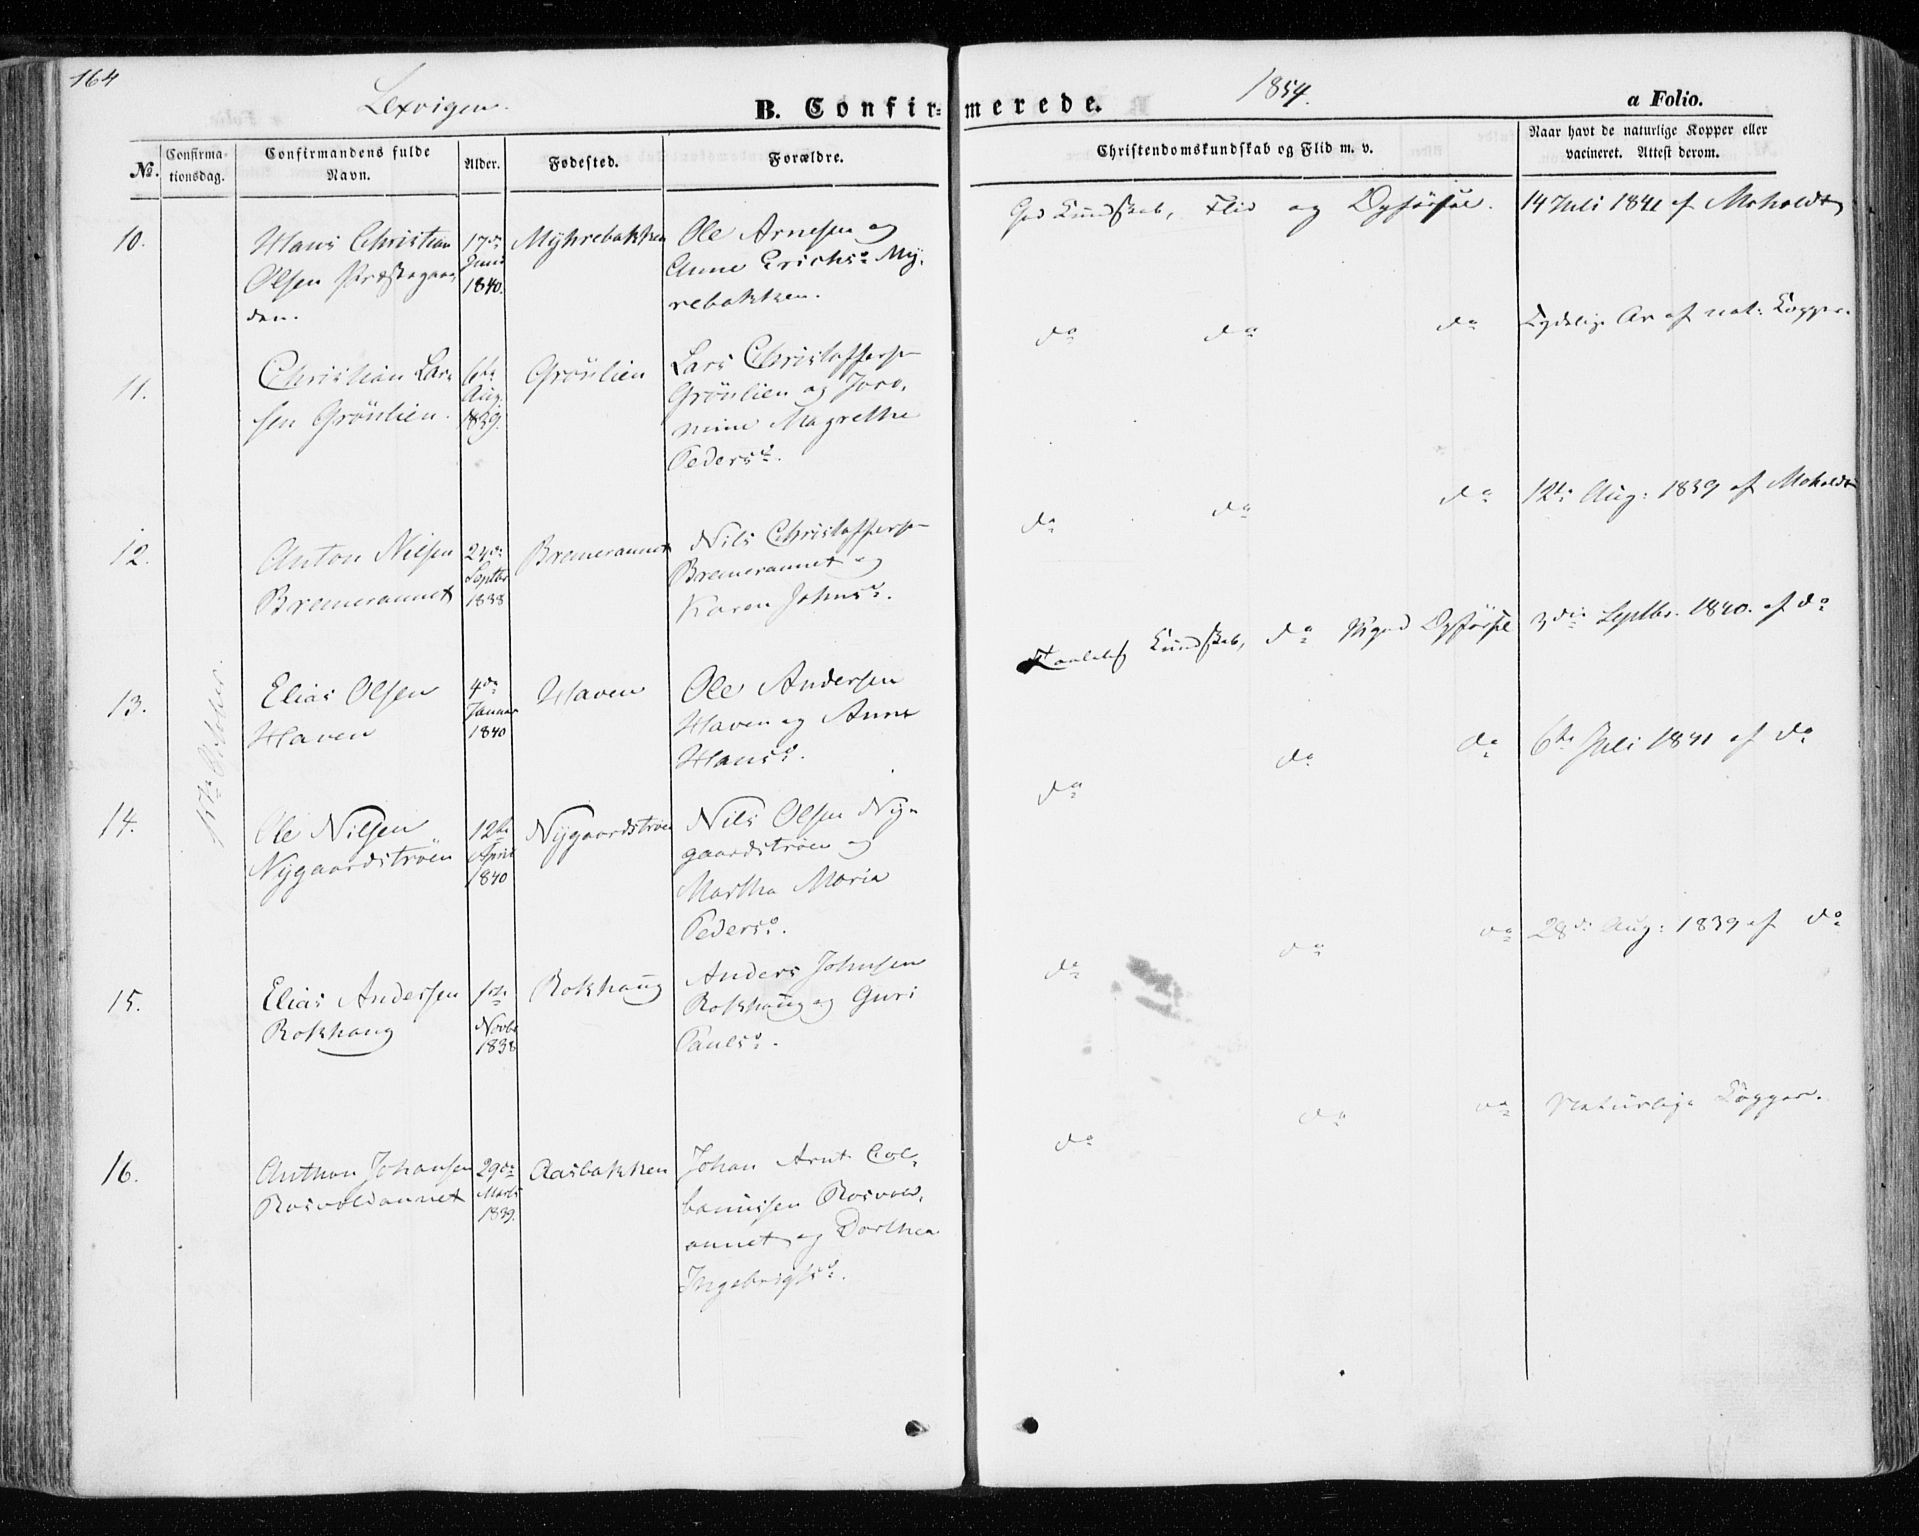 164
Lexvigen.
B. Confirmerede.
1854.
a Folio.
No.
Confirma-
tionsdag.
Confirmandens fulde
Navn.
Alder.
Fødested.
Forældre.
Christendomskundskab og Flid m. v.
Naar havt de naturlige Kopper eller
vacineret. Attest derom.
15de October.
10.
Hans Christian
Olsen Præstegaar,
den.
17de
Juni
1840.
Myhrebakken
Ole Arnesen og
Anne Erichsd. My,
rebakken.
God Kundskab, Flid og Opførsel.
14 Juli 1841 af Moholdt
11.
Christian Lar,
sen Grönlien.
6te
Aug.
1839.
Grönlien
Lars Christoffersen
Grönlien og Joro,
mine Magrethe
Pedersd.
do do do
Tydelig Ar af nat: Kopper.
12.
Anton Nilsen
Bremerannet
24de
Septbr
1838
Bremerannet
Nils Christoffersen
Bremerannet og
Karen Johnsd.
do do do
12te Aug: 1839 af Moholdt
13.
Elias Olsen
Haven
4de
Januar
1840
Haven
Ole Andersen
Haven og Anne
Hansd.
Taalelig Kundskab, do Mgod Opførsel
3die Septbr. 1840. af do
14.
Ole Nilsen
Nygaardströen
12te
April
1840
Nygaardströen
Nils Olsen Ny,
gaardströen og
Martha Maria
Pedersd.
do do do
6te Juli 1841 af do
15.
Elias Andersen
Rokhaug
1ste
Novbr
1838
Rokhaug
Anders Johnsen
Rokhaug og Guri
Paulsd.
do do do
28de Aug: 1839 af do
16.
Anthon Johansen
Rosvoldannet
29de
Marts
1839.
Aasbakken
Johan Arnt Col,
banussen Rosvold,
annet og Dorthea
Ingebrigtsd.
do do do
Naturlige Kopper.